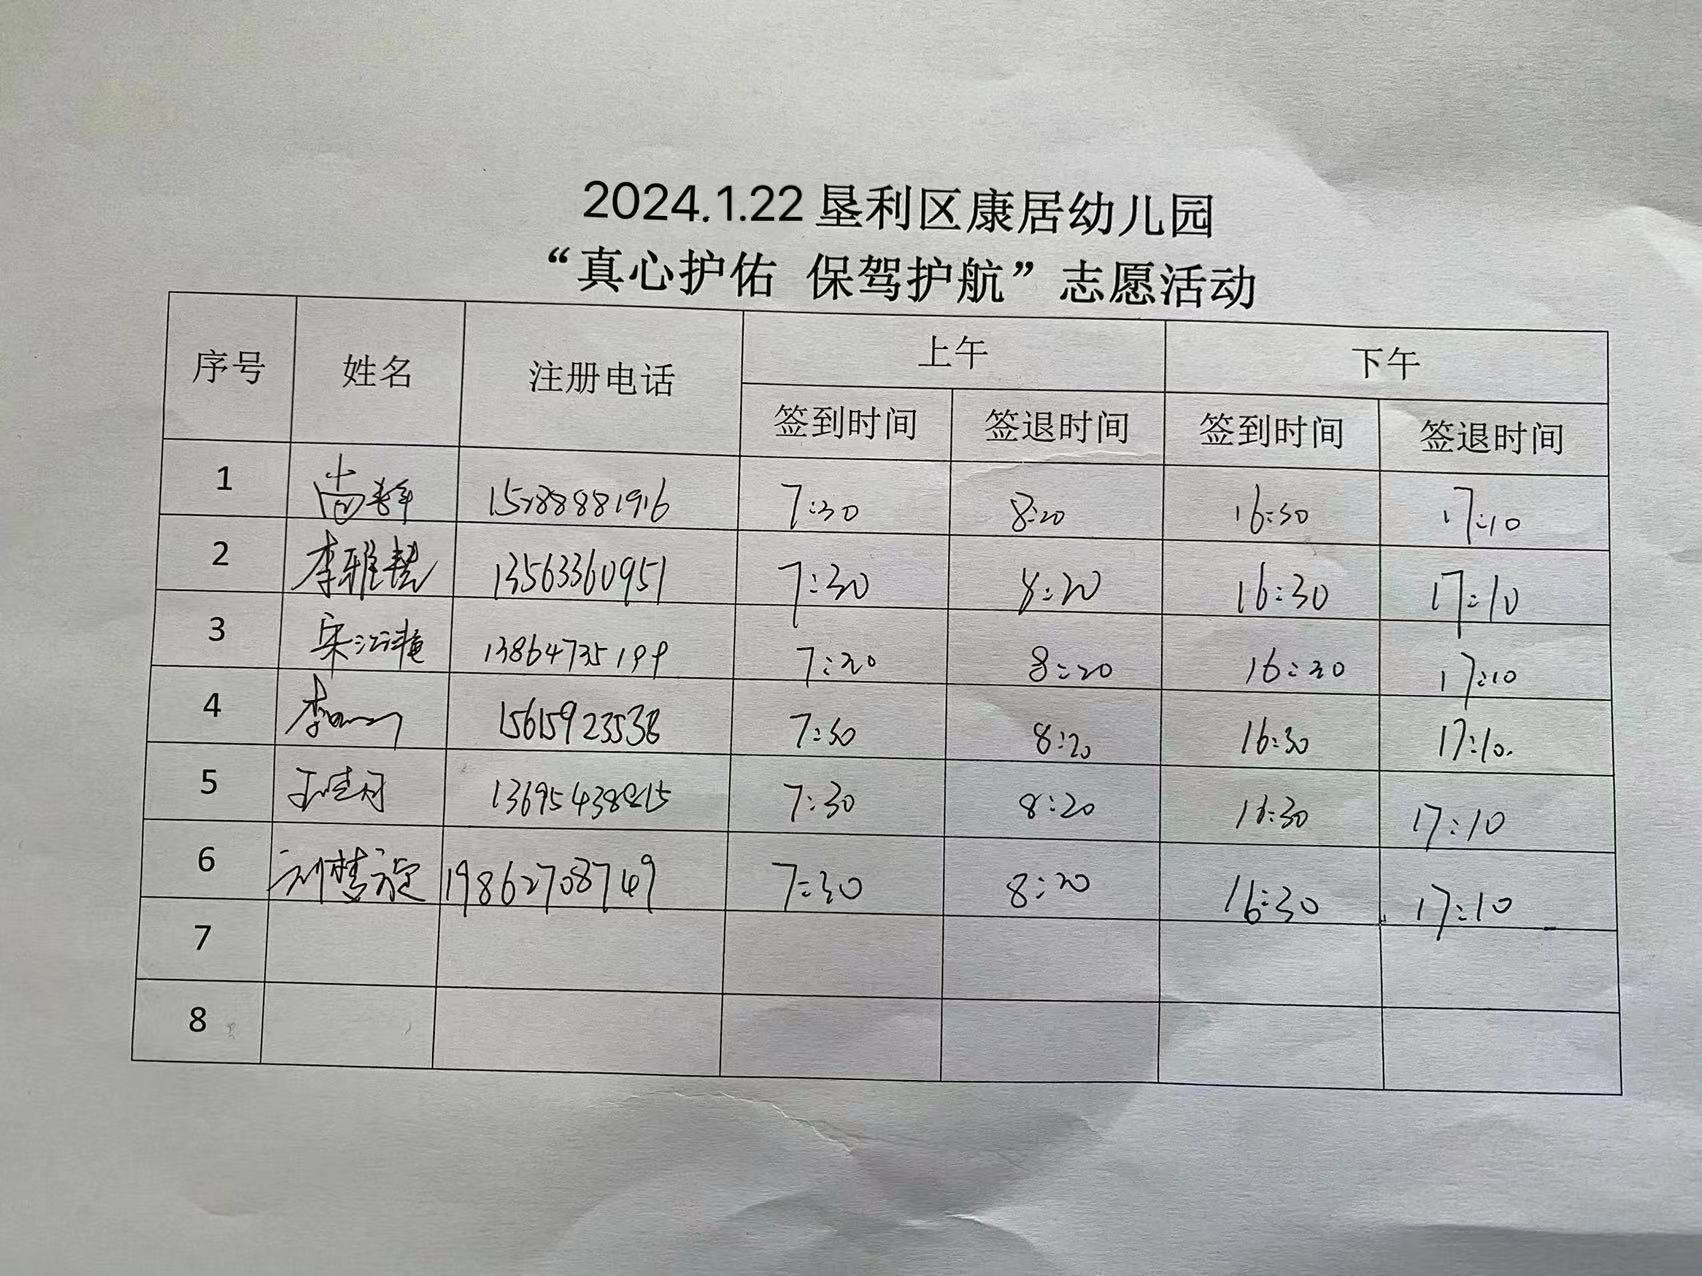 2024.1.22 垦利区康居幼儿园
“真心护佑 保驾护航”志愿活动
序号 姓名 注册电话 上午 下午
签到时间 签退时间 签到时间 签退时间
1 尚静 7:30 8:20 16:30 17:10
2 李雅 13563360951 7:30 8:20 16:30 17:10
3 宋 13864735199 7:30 8:20 16:30 17:10
4 李 15615923538 7:30 8:20 16:30 17:10.
5 王 7:30 8:20 16:30 17:10
6 刘梦璇 19862708749 7:30 8:20 16:30 17:10
7
8